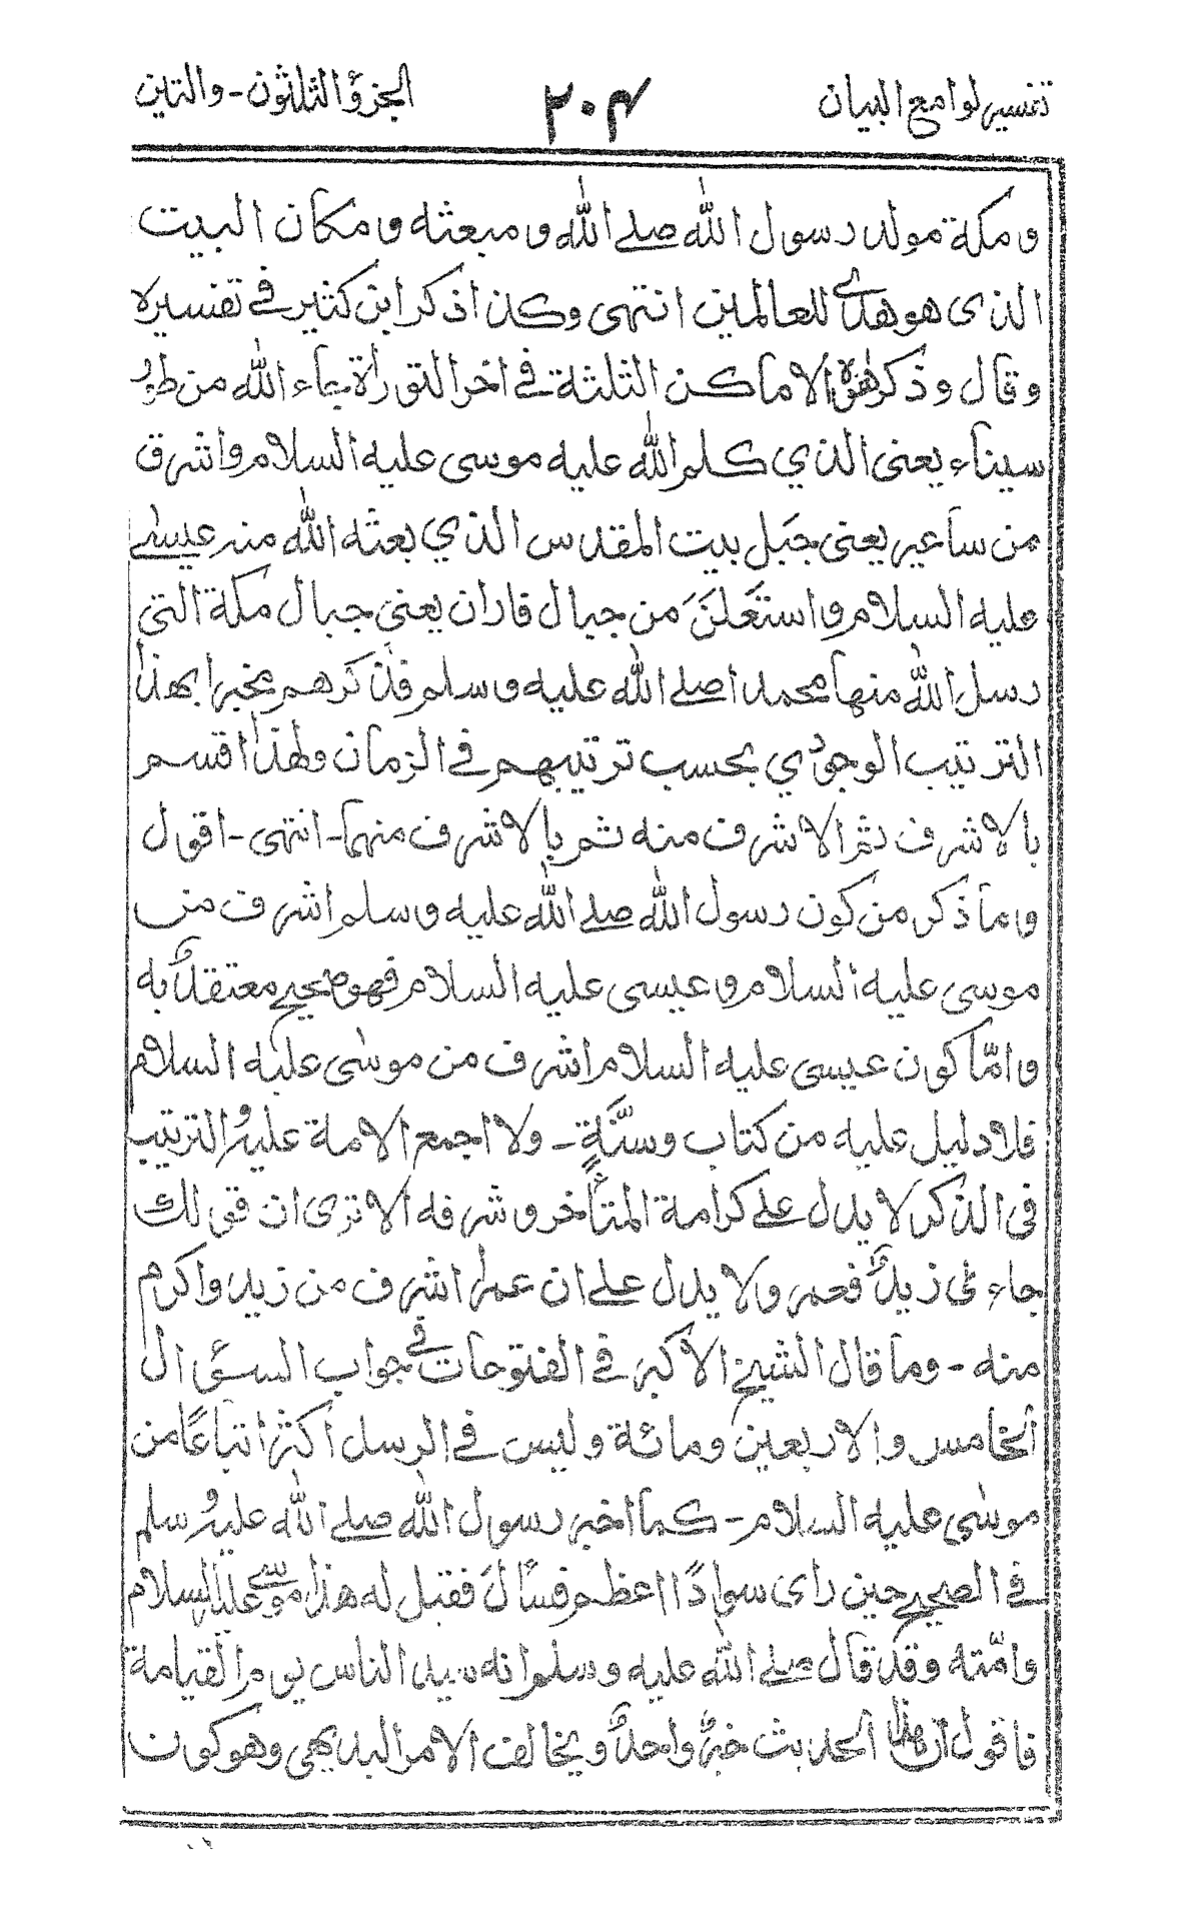 تفسير لوامع البيان ٢٠٤ الجزؤ الثلاثون - والتين
ومكة مولد رسول الله صلے الله ومبعثه ومكان البيت
الذى هو هدى للعالمين انتهى وكذا ذكر ابن كثير فے تفسيره
وقال وذكر هٰؤلاء الاماكن الثلثة فے اخر التوراة جاء الله من طور
سيناء يعنى الذي كلم الله عليه موسى عليه السلام واشرق
من ساعير يعنى جَبل بيت المقدس الذي بعثه الله منه عيسے
عليه السلام واستَعلَنَ من جبال فاران يعنى جبال مكة التى
رسل الله منها محمدا صلے الله عليه وسلم فذكرهم مخبرا بهذا
الترتيب الوجودي بحسب ترتيبهم فے الزمان ولهذا اقسم
بالاشرف ثم الاشرف منه ثم بالاشرف منهما - انتهى - اقول
وما ذكر من كون رسول الله صلے الله عليه وسلم اشرف من
موسى عليه السلام وعيسى عليه السلام فهو صحيح معتقدٌ به
وامّا كون عيسى عليه السلام اشرف من موسٰى عليه السلام
فلا دليل عليه من كتاب وسنَّةٍ - ولا اجمع الامة عليه والترتيب
فى الذكر لا يدل علے كرامة المتأخر وشرفه الا ترى ان قولك
جاءنى زيدٌ فعمر ولا يدل علے ان عمرا اشرف من زيد واكرم
منه - وما قال الشيخ الاكبر فے الفتوحات فے جواب السؤال
الخامس والاربعين ومائة وليس فے الرسل اكثر اتباعًا من
موسٰى عليه السلام - كما اخبر رسول الله صلے الله عليه وسلم
فے الصحيح حين راى سوادًا اعظم فسأل فقيل له هذا موسے عليه السلام
وامّته وقد قال صلے الله عليه وسلم انه سيد الناس يوم القيامة
فاقول ان هٰذا الحديث خبرٌ واحدٌ ويخالف الامر البديهى وهو كون